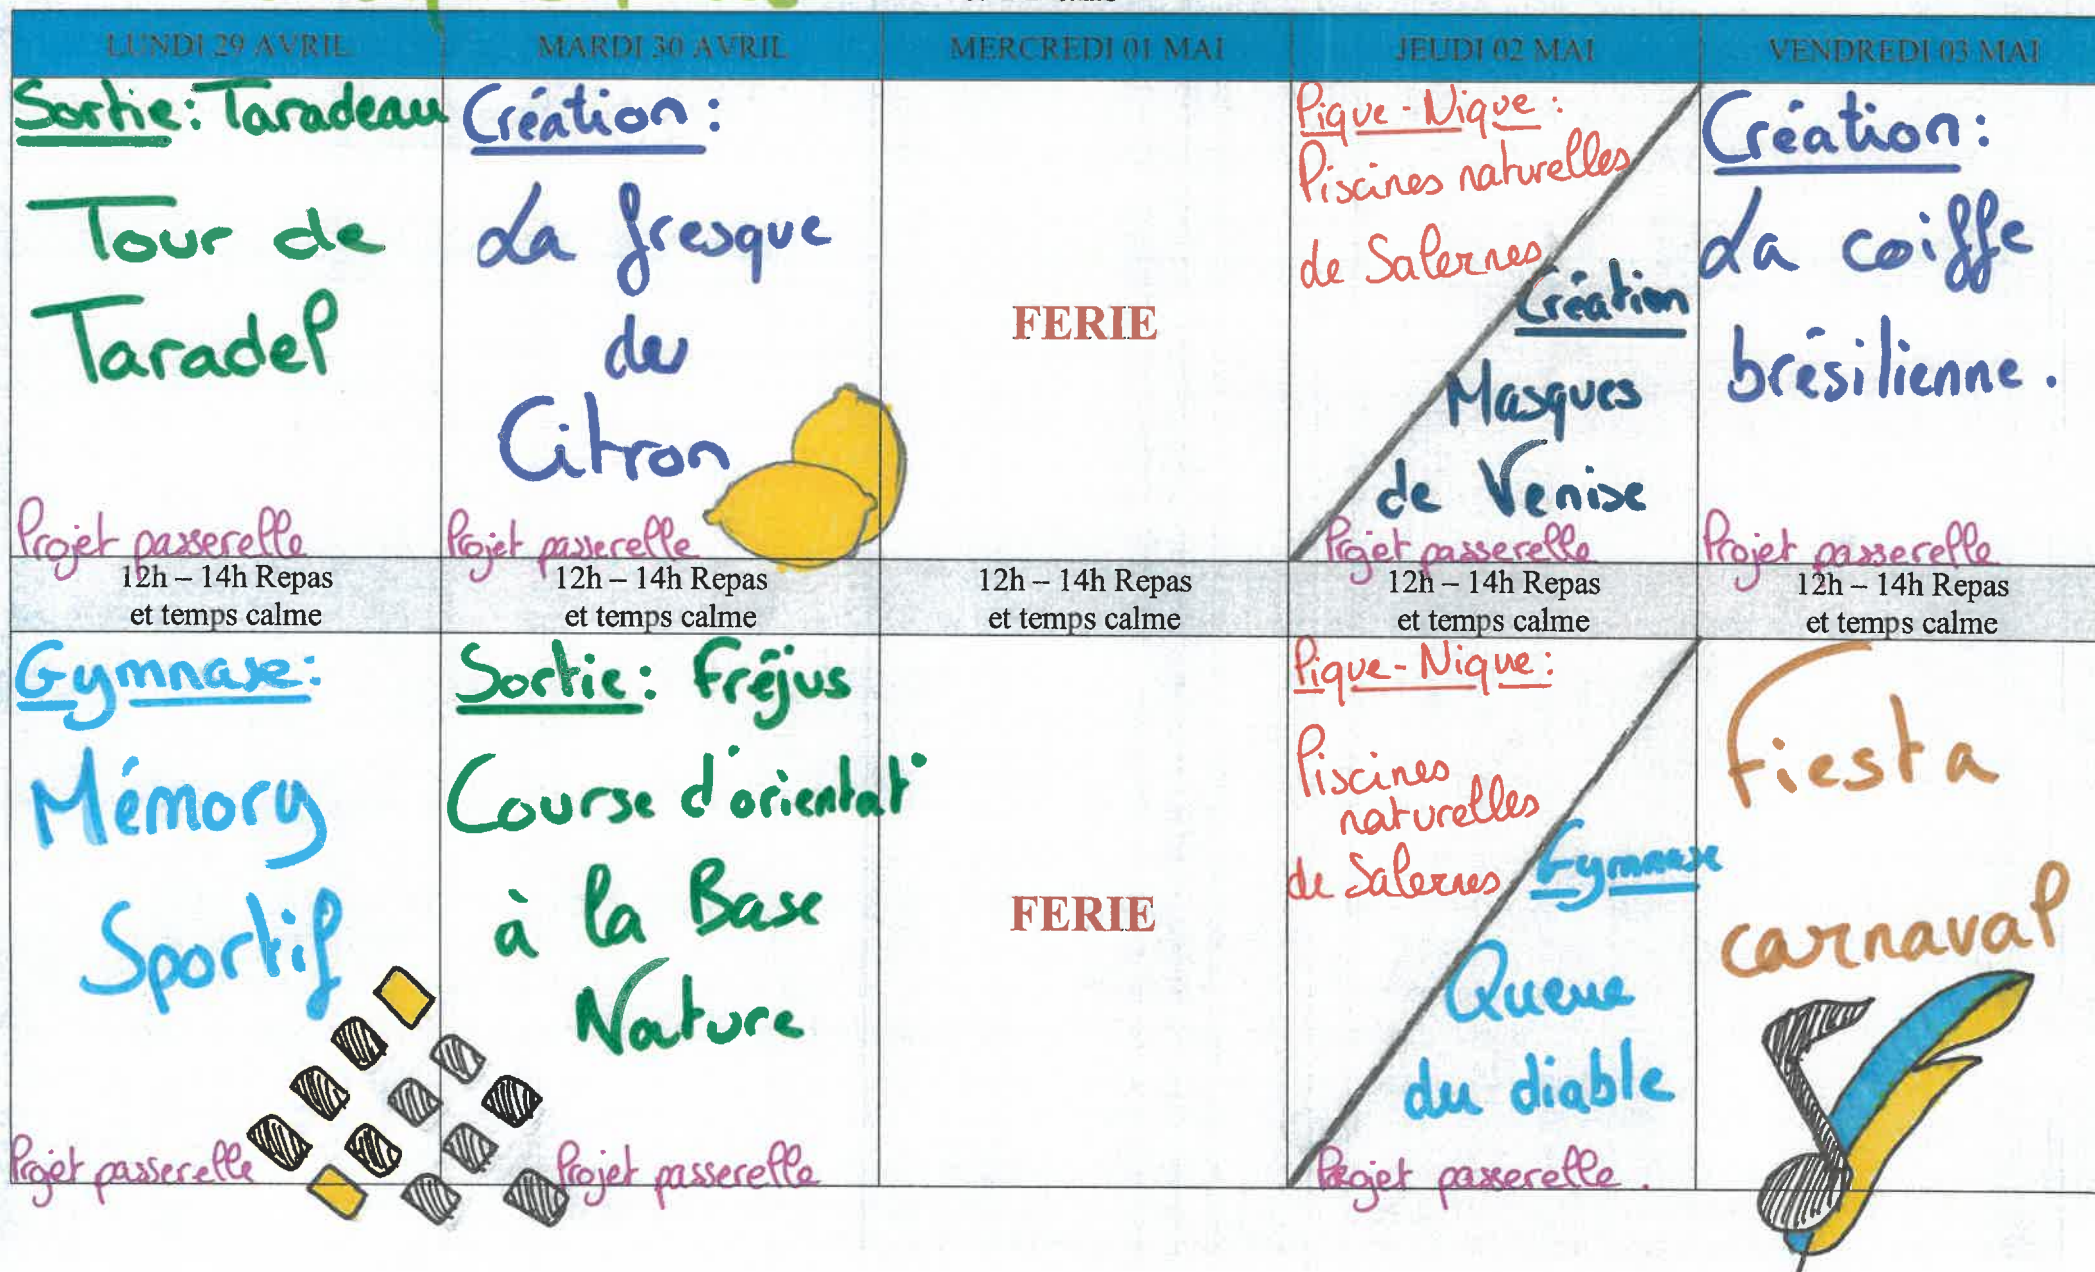 LUNDI 29 AVRIL
MARDI 30 AVRIL
MERCREDI 01 MAI
JEUDI 02 MAI
VENDREDI 03 MAI
Sortie: Taradeau
Tour de
Taradel
Projet passerelle
Création :
La fresque
du
Citron
Projet passerelle
FERIE
Pique-Nique :
Piscines naturelles
de Salernes
Création
Masques
de Venise
Projet passerelle
Création :
La coiffe
brésilienne.
Projet passerelle
12h – 14h Repas
et temps calme
12h – 14h Repas
et temps calme
12h – 14h Repas
et temps calme
12h – 14h Repas
et temps calme
12h – 14h Repas
et temps calme
Gymnase:
Mémory
Sportif
Projet passerelle
Sortie: Fréjus
Course d'orientat°
à la Base
Nature
Projet passerelle
FERIE
Pique-Nique :
Piscines
naturelles
de Salernes
Gymnase
Queue
du diable
Projet passerelle.
Fiesta
carnaval